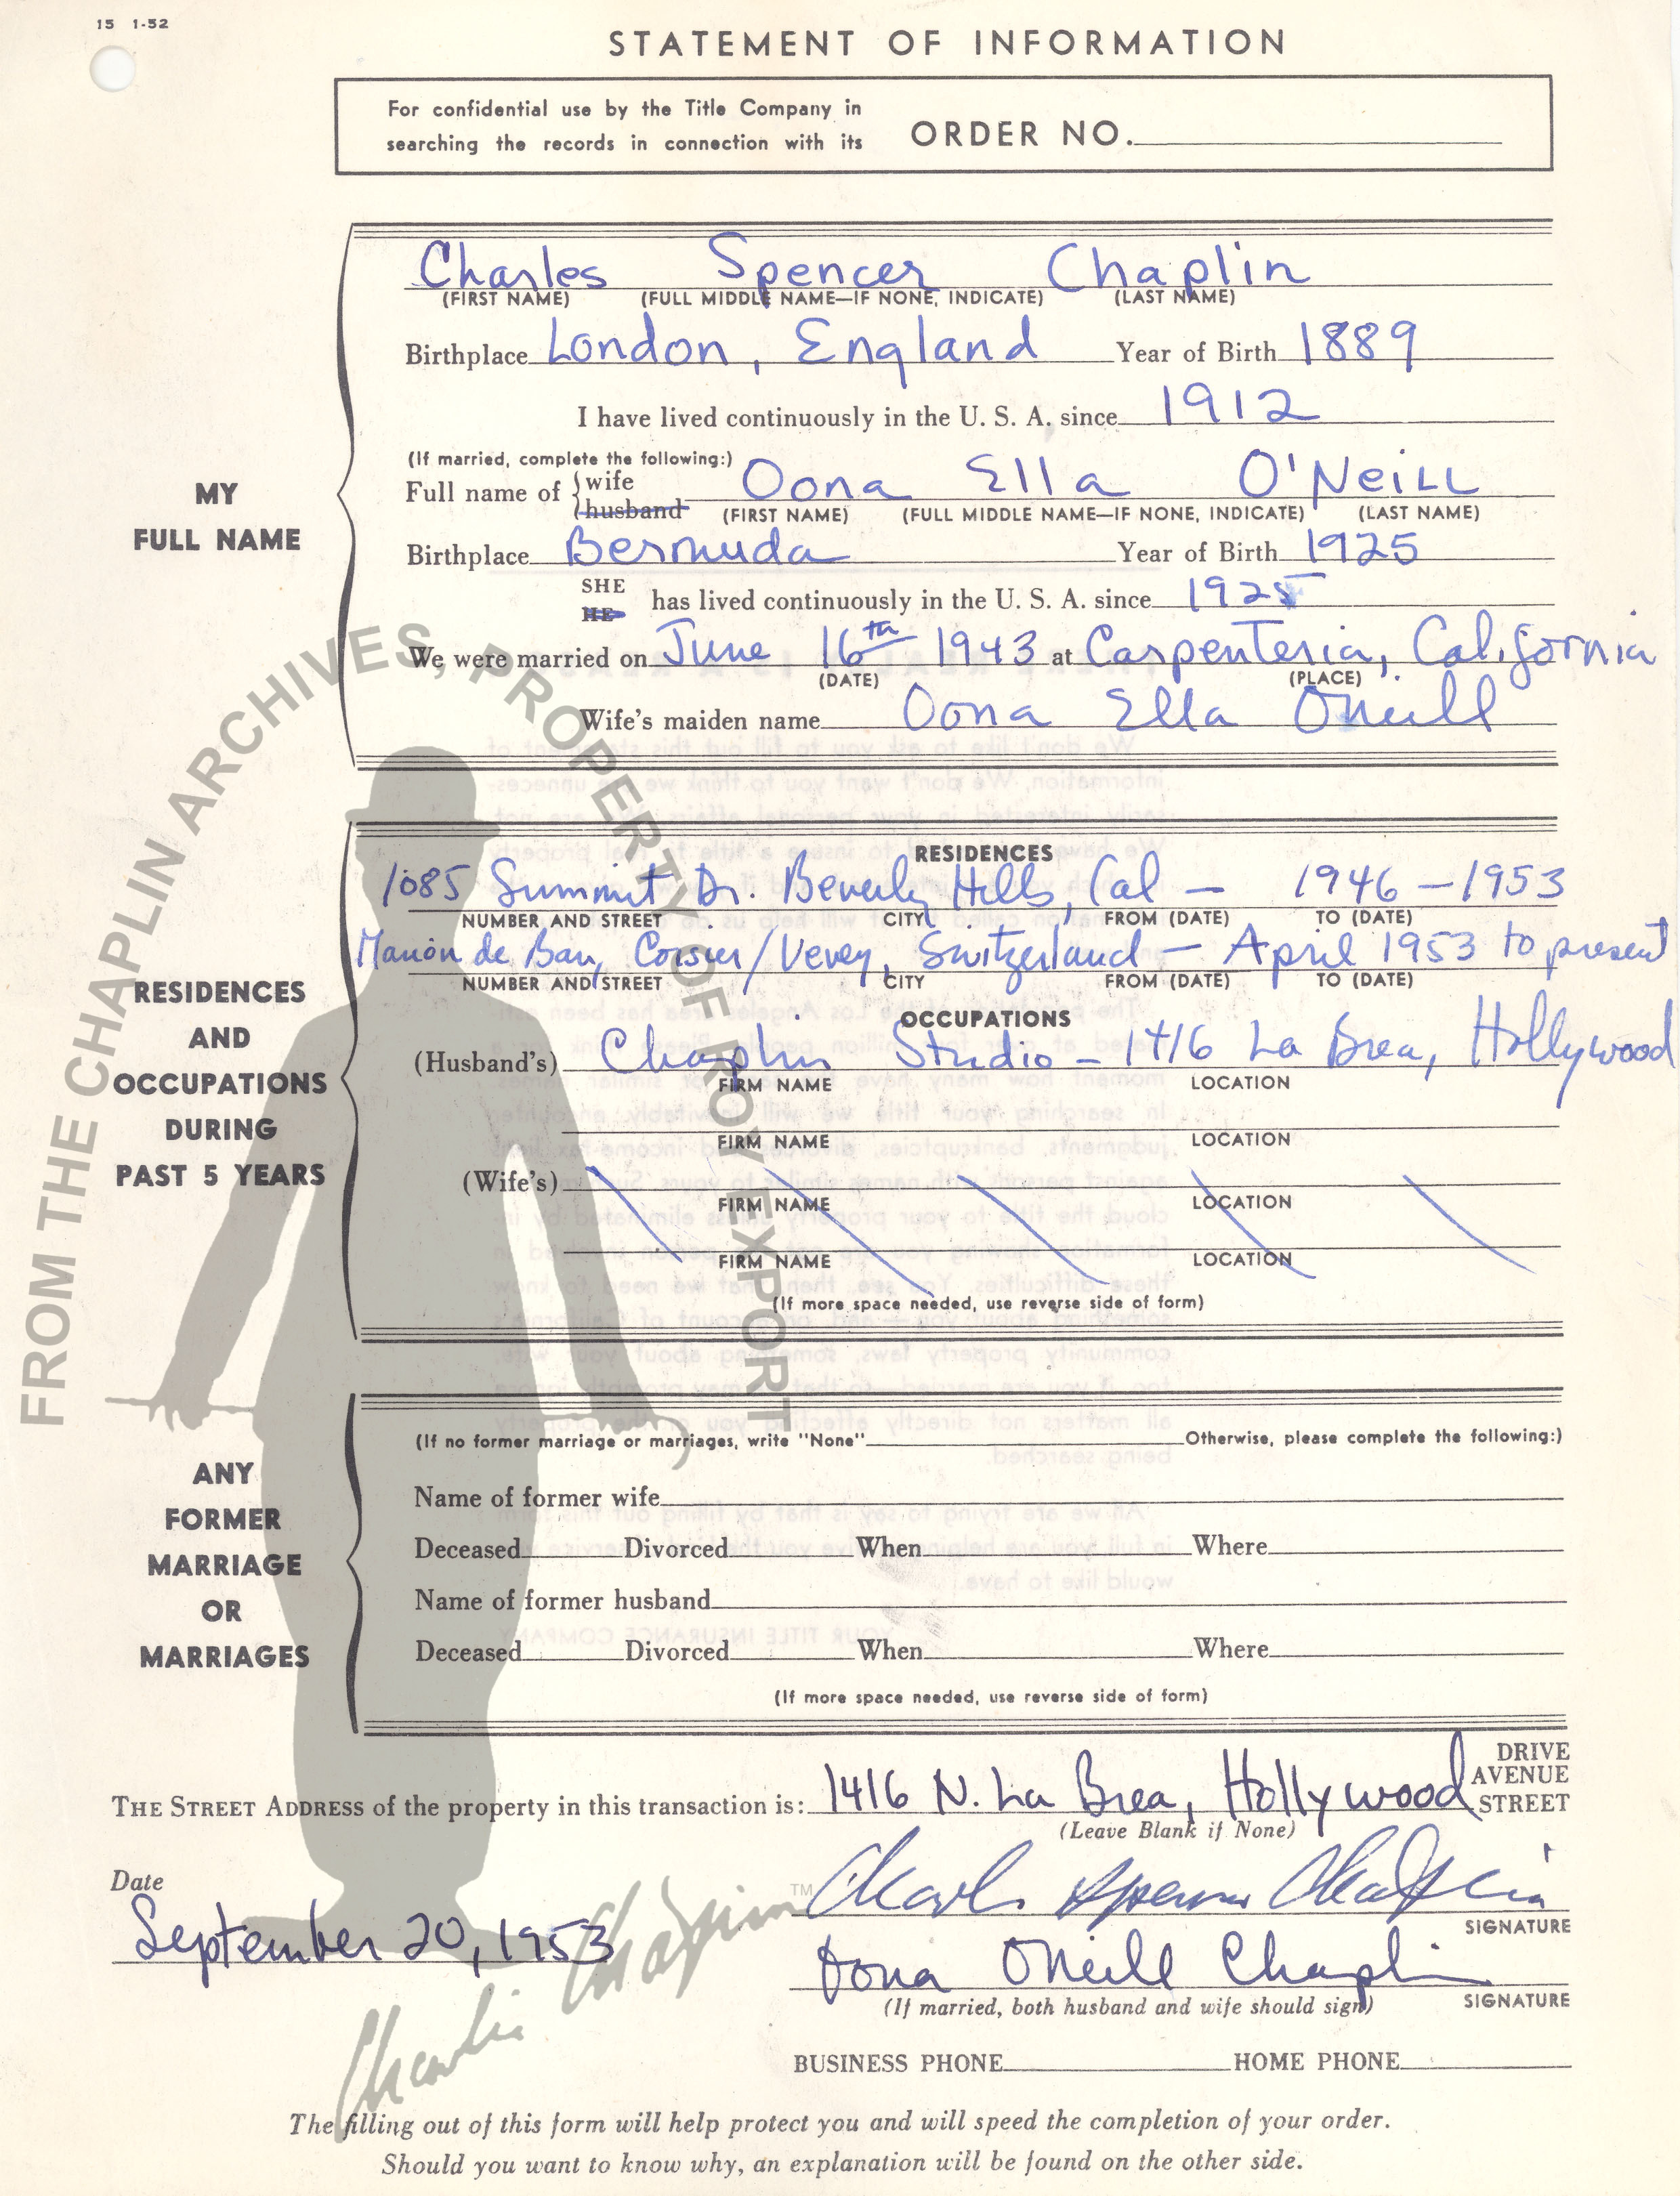 15 1-52
STATEMENT OF INFORMATION
For confidential use by the Title Company in
searching the records in connection with its
ORDER NO.
Charles Spencer Chaplin
(FIRST NAME) (FULL MIDDLE NAME—IF NONE, INDICATE) (LAST NAME)
Birthplace London, England Year of Birth 1889
I have lived continuously in the U. S. A. since 1912
(If married, complete the following:)
MY
FULL NAME
Full name of { wife husband Oona Ella O'NeiLL
(FIRST NAME) (FULL MIDDLE NAME—IF NONE, INDICATE) (LAST NAME)
Birthplace Bermuda Year of Birth 1925
SHE
HE has lived continuously in the U. S. A. since 1925
We were married on June 16th 1943 at Carpenteria, California
(DATE) (PLACE)
Wife's maiden name Oona Ella ONeill
RESIDENCES
AND
OCCUPATIONS
DURING
PAST 5 YEARS
RESIDENCES
1085 Summit Dr. Beverly Hills, Cal — 1946 — 1953
NUMBER AND STREET CITY FROM (DATE) TO (DATE)
Manoir de Ban, Corsier/Vevey, Switzerland — April 1953 to present
NUMBER AND STREET CITY FROM (DATE) TO (DATE)
OCCUPATIONS
(Husband's) Chaplin Studio — 1416 La Brea, Hollywood
FIRM NAME LOCATION
FIRM NAME LOCATION
(Wife's)
FIRM NAME LOCATION
FIRM NAME LOCATION
(If more space needed, use reverse side of form)
ANY
FORMER
MARRIAGE
OR
MARRIAGES
(If no former marriage or marriages, write "None" Otherwise, please complete the following:)
Name of former wife
Deceased Divorced When Where
Name of former husband
Deceased Divorced When Where
(If more space needed, use reverse side of form)
THE STREET ADDRESS of the property in this transaction is: 1416 N. La Brea, Hollywood
DRIVE
AVENUE
STREET
(Leave Blank if None)
Date
September 20, 1953
Charles Spencer Chaplin
SIGNATURE
Oona ONeill Chaplin
(If married, both husband and wife should sign) SIGNATURE
BUSINESS PHONE HOME PHONE
The filling out of this form will help protect you and will speed the completion of your order.
Should you want to know why, an explanation will be found on the other side.
FROM THE CHAPLIN ARCHIVES, PROPERTY OF ROY EXPORT
Charlie Chaplin TM